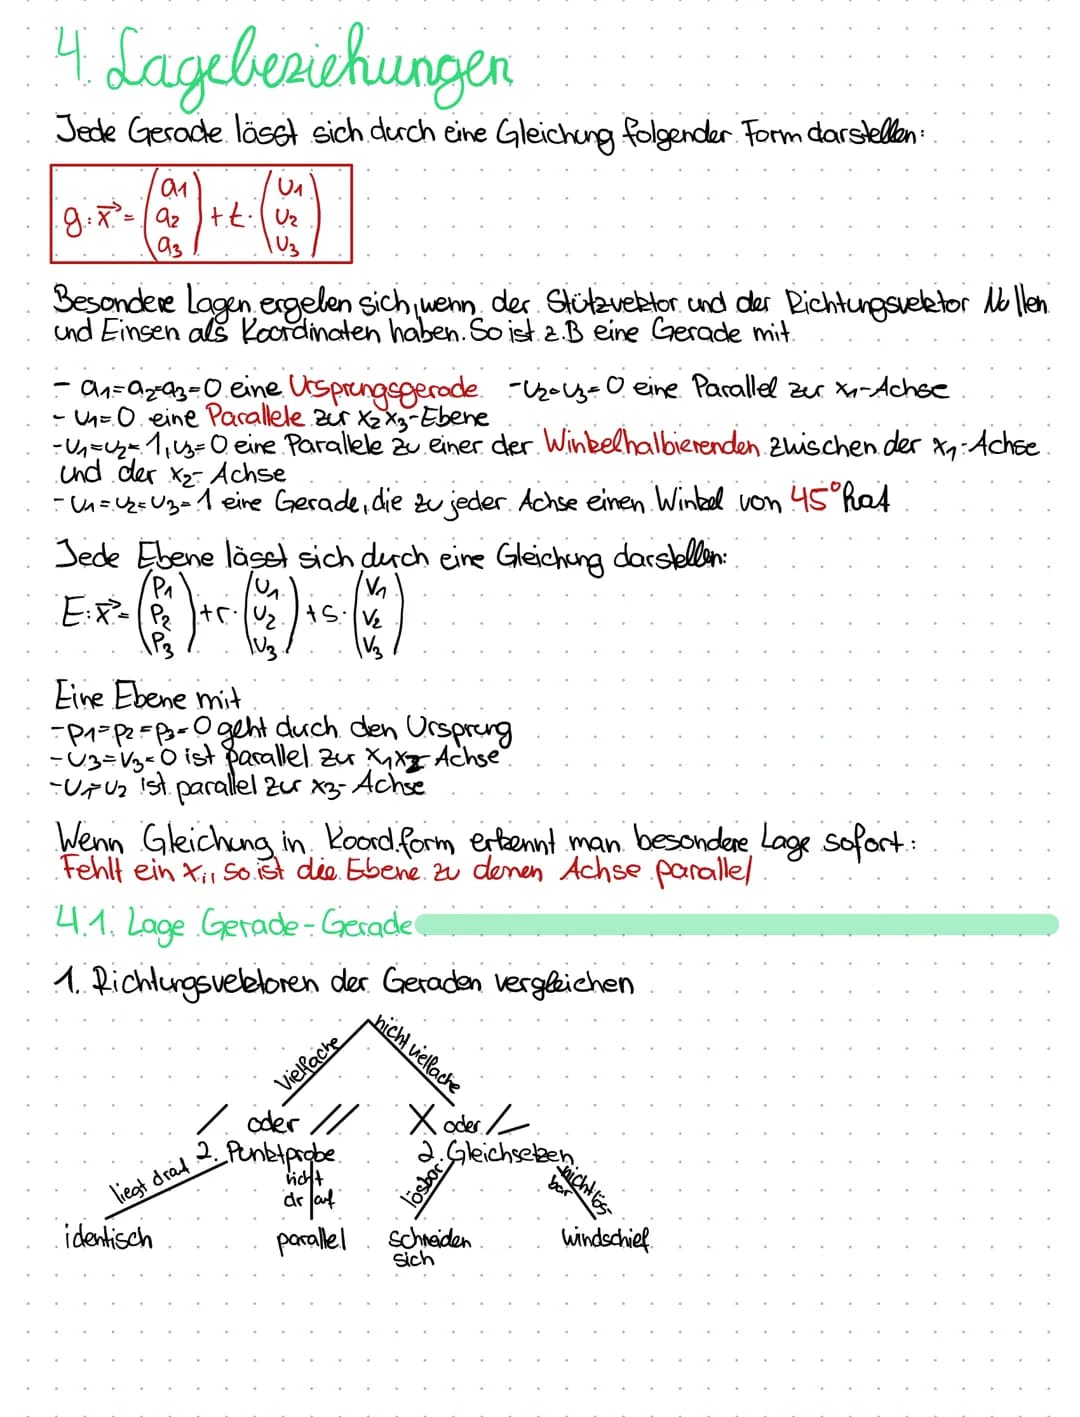 4. Lagebeziehungen
Jede Gerade lässt sich durch eine Gleichung folgender Form darstellen:
g: x⃗ = (a1 a2 a3) + t · (u1 u2 u3)
Besondere Lagen ergeben sich, wenn der Stützvektor und der Richtungsvektor Nullen
und Einsen als Koordinaten haben. So ist z.B eine Gerade mit
- a1=a2=a3=0 eine Ursprungsgerade -u2=u3=0 eine Parallel zur x1-Achse
- u1=0 eine Parallele zur x2x3-Ebene
-u1=u2=1, u3=0 eine Parallele zu einer der Winkelhalbierenden zwischen der x1-Achse
und der x2-Achse
- u1=u2=u3=1 eine Gerade, die zu jeder Achse einen Winkel von 45° hat
Jede Ebene lässt sich durch eine Gleichung darstellen:
E: x⃗ = (p1 p2 p3) + r · (u1 u2 u3) + s · (v1 v2 v3)
Eine Ebene mit
-p1=p2=p3=0 geht durch den Ursprung
-u3=v3=0 ist parallel zur x1x2-Achse
ist parallel zur x3-Achse
Wenn Gleichung in Koord.form erkennt man besondere Lage sofort:
Fehlt ein xi, so ist die Ebene zu denen Achse parallel
4.1. Lage Gerade-Gerade
1. Richtungsvektoren der Geraden vergleichen
Vielfache nicht vielfache
oder oder
2. Punktprobe 2. Gleichsetzen
liegt drauf nicht drauf lösbar nicht lösbar
identisch parallel schneiden sich windschief